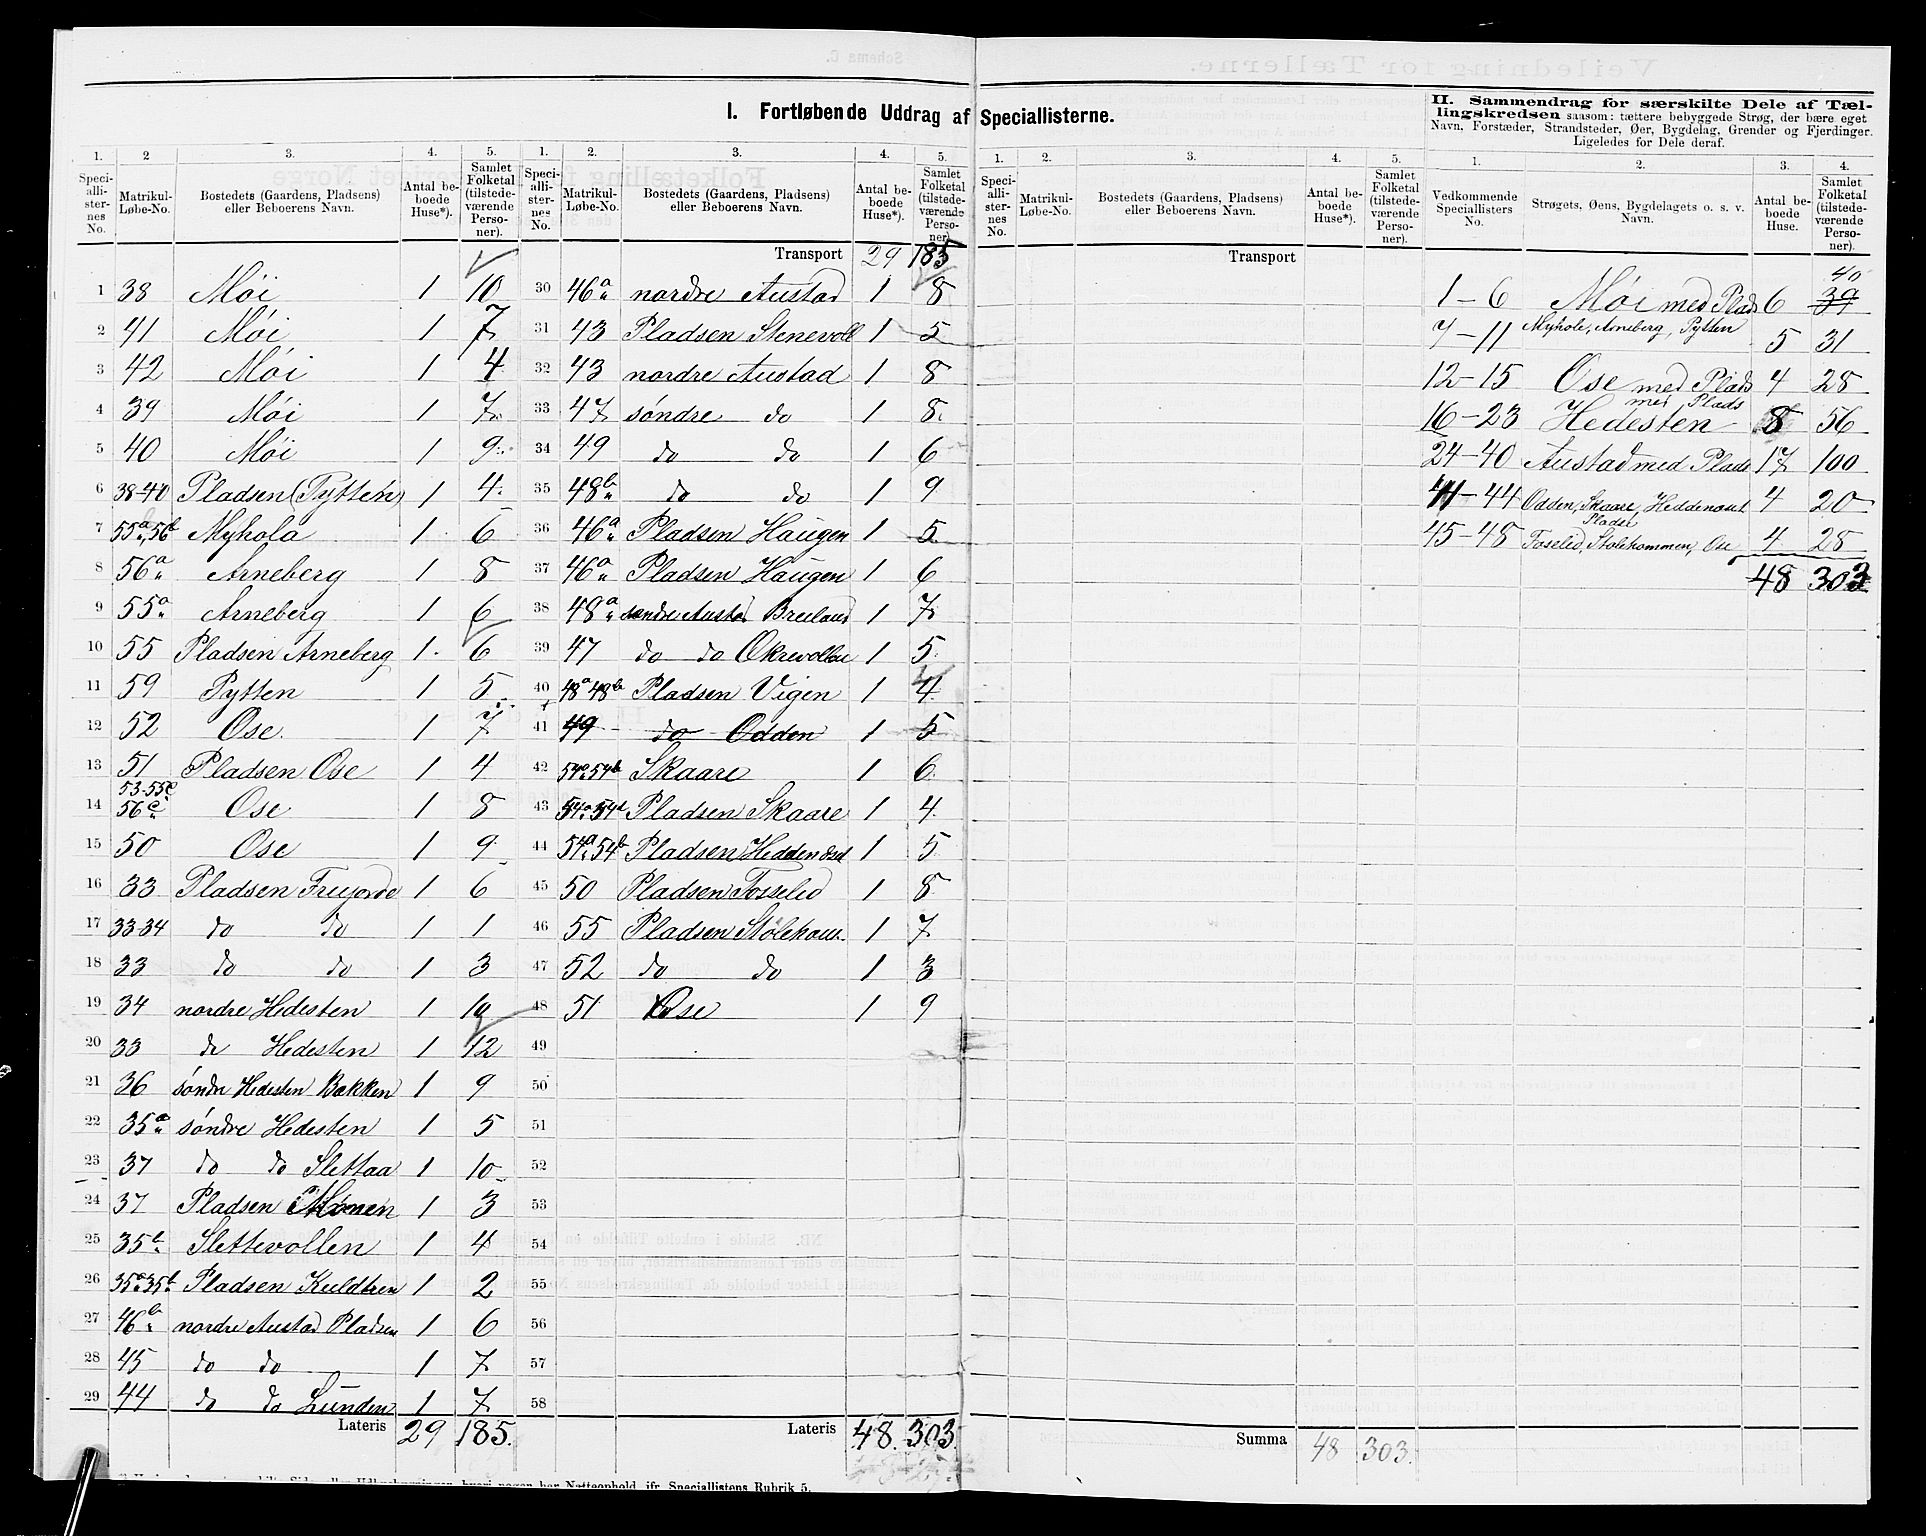 I. Fortløbende Uddrag af Speciallisterne.
II. Sammendrag for særskilte Dele af Tæl-
lingskredsen saasom: tættere bebyggede Strøg, der bære eget
Navn, Forstæder, Strandsteder, Øer, Bygdelag, Grender og Fjerdinger.
Ligeledes for Dele deraf.
1. 2 3. 4. 5. 1. 2. 3. 4. 5. 1. 2. 3. 4. 5. 1. 2. 3. 4.
Speci-alli-ster-nes No. Matrikul-Løbe-No. Bostedets (Gaardens, Pladsens) eller Beboerens Navn. Antal be-boede Huse*). Samlet Folketal (tilstede-værende Perso-ner).
Speci-alli-ster-nes No. Matrikul-Løbe-No. Bostedets (Gaardens, Pladsens) eller Beboerens Navn. Antal be-boede Huse*). Samlet Folketal (tilstede-værende Perso-ner).
Speci-alli-ster-nes No. Matrikul-Løbe-No. Bostedets (Gaardens, Pladsens) eller Beboerens Navn. Antal be-boede Huse*). Samlet Folketal (tilstede-værende Perso-ner).
Vedkommende Speciallisters No. Strøgets, Øens, Bygdelagets o. s. v. Navn. Antal be-boede Huse. Samlet Folketal (tilstede-værende Perso-ner).
1 38 Møi 1 10
2 41 Møi 1 7
3 42 Møi 1 4
4 39 Møi 1 7
5 40 Møi 1 9
6 38-40 Pladsen (Pytten) 1 4
7 55a, 56b Myhola 1 6
8 56a Arneberg 1 8
9 55a Arneberg 1 6
10 55 Pladsen Arneberg 1 6
11 59 Pytten 1 5
12 52 Ose 1 7
13 51 Pladsen Ose 1 4
14 53-55c 56c Ose 1 8
15 50 Ose 1 9
16 33 Pladsen 1 6
17 33-34 do do 1 1
18 33 do do 1 3
19 34 nordre Hedesten 1 10
20 33 do Hedesten 1 12
21 36 søndre Hedesten Bakken 1 9
22 35a søndre Hedesten 1 5
23 37 do do Slettaa 1 10
24 37 Pladsen Monen 1 3
25 35b Slettevollen 1 4
26 35a 35b Pladsen 1 2
27 46b nordre Austad Pladsen 1 6
28 45 do do 1 7
29 44 do do Lunden 1 7
Lateris 29 185.
Transport 29 185
30 46a nordre Austad 1 8
31 43 Pladsen Stenevoll 1 5
32 43 nordre Austad 1 8
33 47 søndre do 1 8
34 49 do do 1 6
35 48b do do 1 9
36 46a Pladsen Haugen 1 5
37 46a Pladsen Haugen 1 6
38 48a søndre Austad Breiland 1 7
39 47 do do 1 5
40 48a 48b Pladsen Vigen 1 4
41 49 do Odden 1 5
42 54a 54b Skaare 1 6
43 54a 54d Pladsen Skaare 1 4
44 54a 54b Pladsen 1 5
45 50 Pladsen Fosselid 1 8
46 55 Pladsen 1 7
47 52 do do 1 3
48 51 Ose 1 9
49
50
51
52
53
54
55
56
57
58
Lateris 48. 303.
Transport
Summa 48 303.
40
1-6 Møi med Plads 6 39
7-11 Myhole, Arneberg, Pytten 5 31
12-15 Ose med Plads 4 28
med Plads
16-23 Hedesten 8 56
24-40 Austad med Plads 17 100
41-44 Odden, Skaare, 4 20
Pladse
45-48 Fosselid, Stolehommen, Ose 4 28
48 303